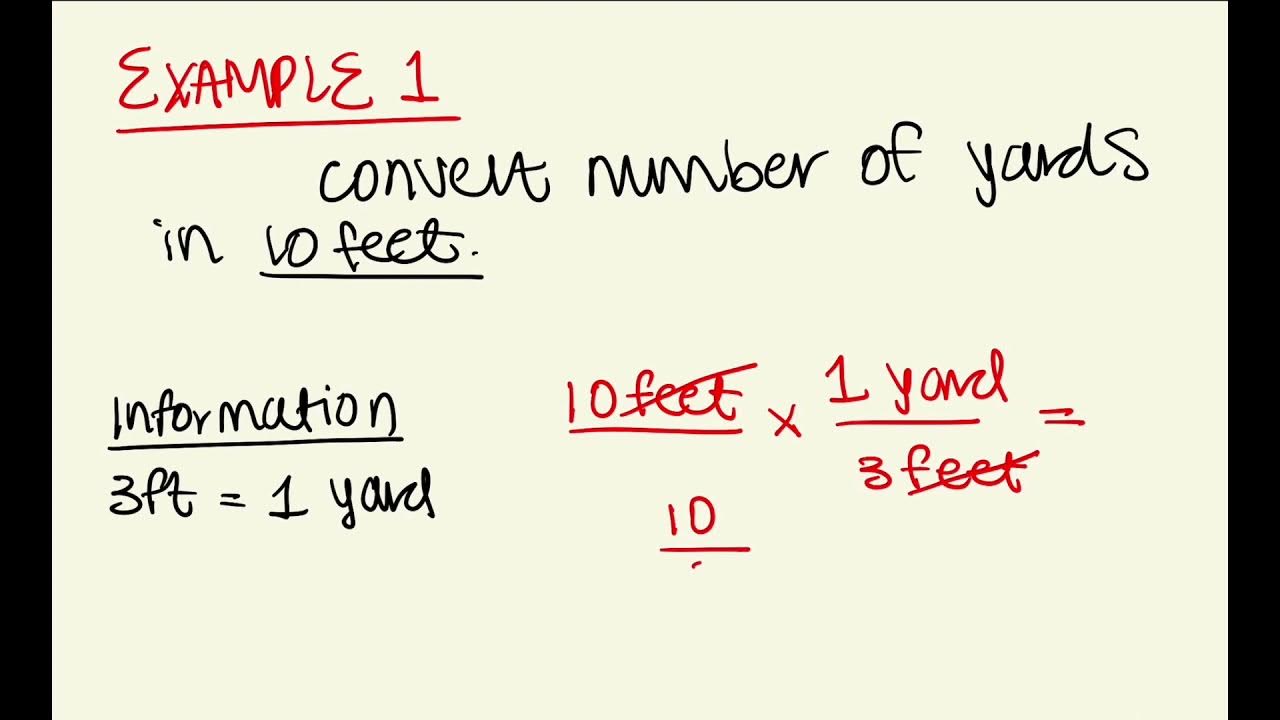 EXAMPLE 1
convert number of yards
in 10 feet.
Information
3ft = 1 yard
10 feet × 1 yard =
3 feet
10